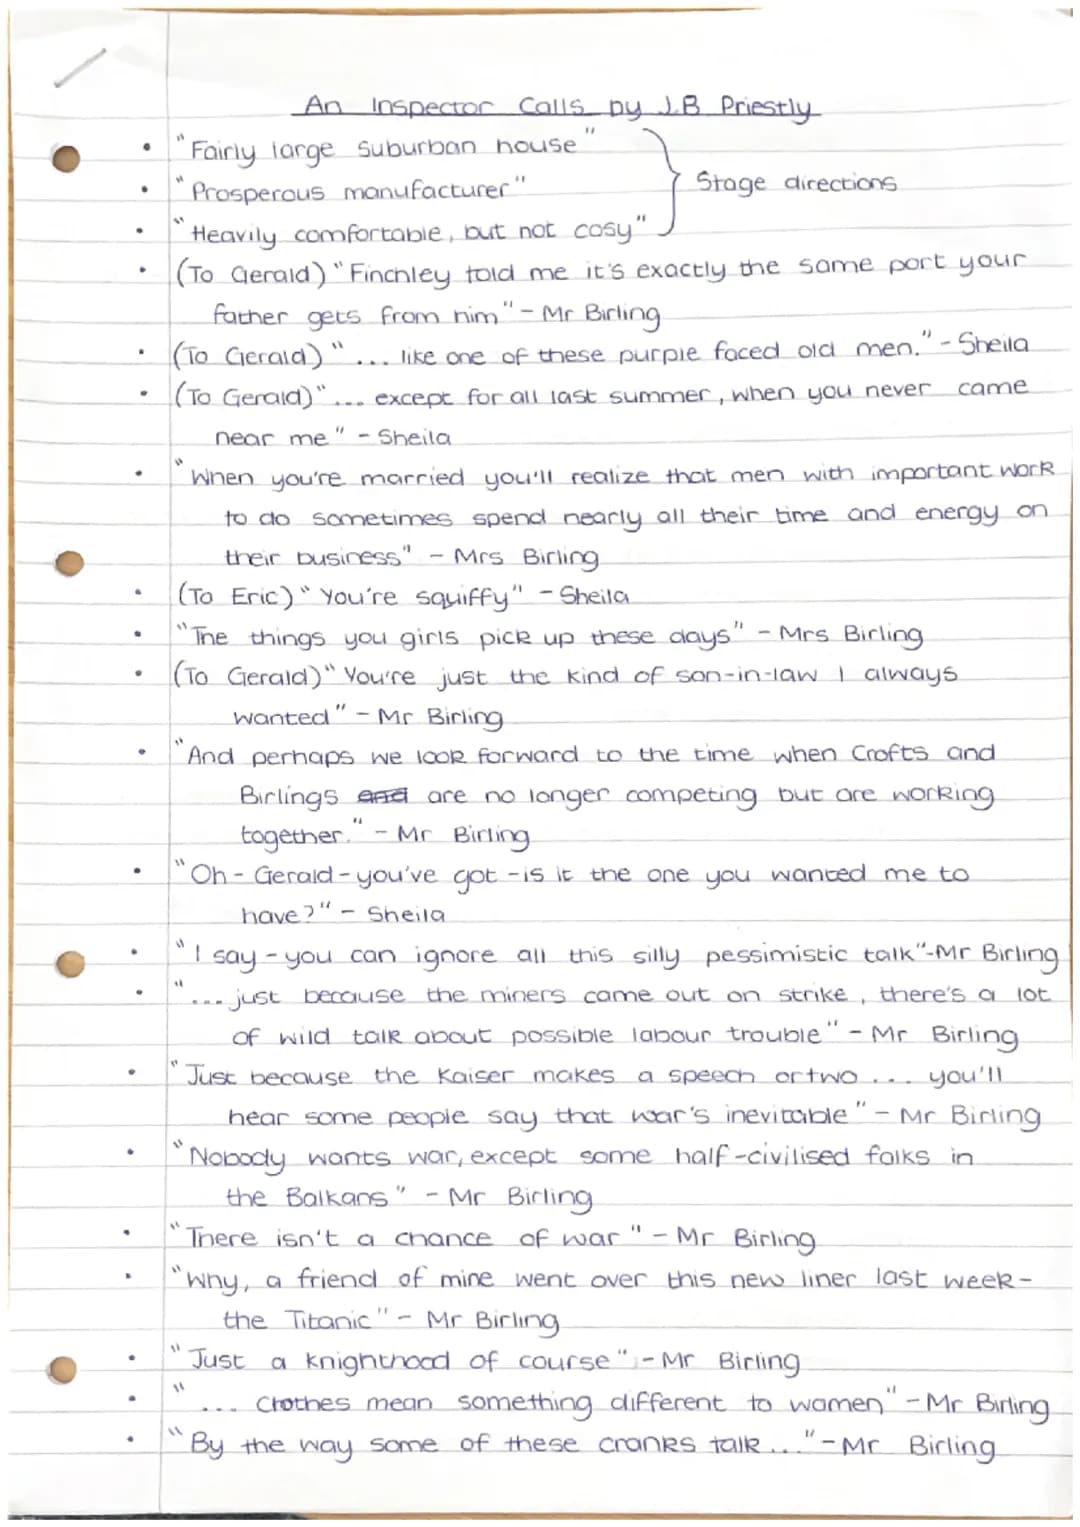 An Inspector Calls by J.B Priestly
• "Fairly large suburban house"
• "Prosperous manufacturer"
Stage directions
• "Heavily comfortable, but not cosy"
• (To Gerald) "Finchley told me it's exactly the same port your
father gets from him" - Mr Birling
• (To Gerald) "... like one of these purple faced old men." - Sheila
• (To Gerald) "... except for all last summer, when you never came
near me" - Sheila
• "When you're married you'll realize that men with important work
to do sometimes spend nearly all their time and energy on
their business" - Mrs Birling
• (To Eric) "You're squiffy" - Sheila
• "The things you girls pick up these days" - Mrs Birling
• (To Gerald) "You're just the kind of son-in-law I always
wanted" - Mr Birling
• "And perhaps we look forward to the time when Crofts and
Birlings and are no longer competing but are working
together." - Mr Birling
• "Oh - Gerald - you've got - is it the one you wanted me to
have?" - Sheila
• "I say - you can ignore all this silly pessimistic talk" - Mr Birling
• "... just because the miners came out on strike, there's a lot
of wild talk about possible labour trouble" - Mr Birling
• "Just because the Kaiser makes a speech or two ... you'll
hear some people say that war's inevitable" - Mr Birling
• "Nobody wants war, except some half-civilised folks in
the Balkans" - Mr Birling
• "There isn't a chance of war" - Mr Birling
• "Why, a friend of mine went over this new liner last week -
the Titanic" - Mr Birling
• "Just a knighthood of course" - Mr Birling
• "... Clothes mean something different to women" - Mr Birling
• "By the way some of these cranks talk..." - Mr Birling